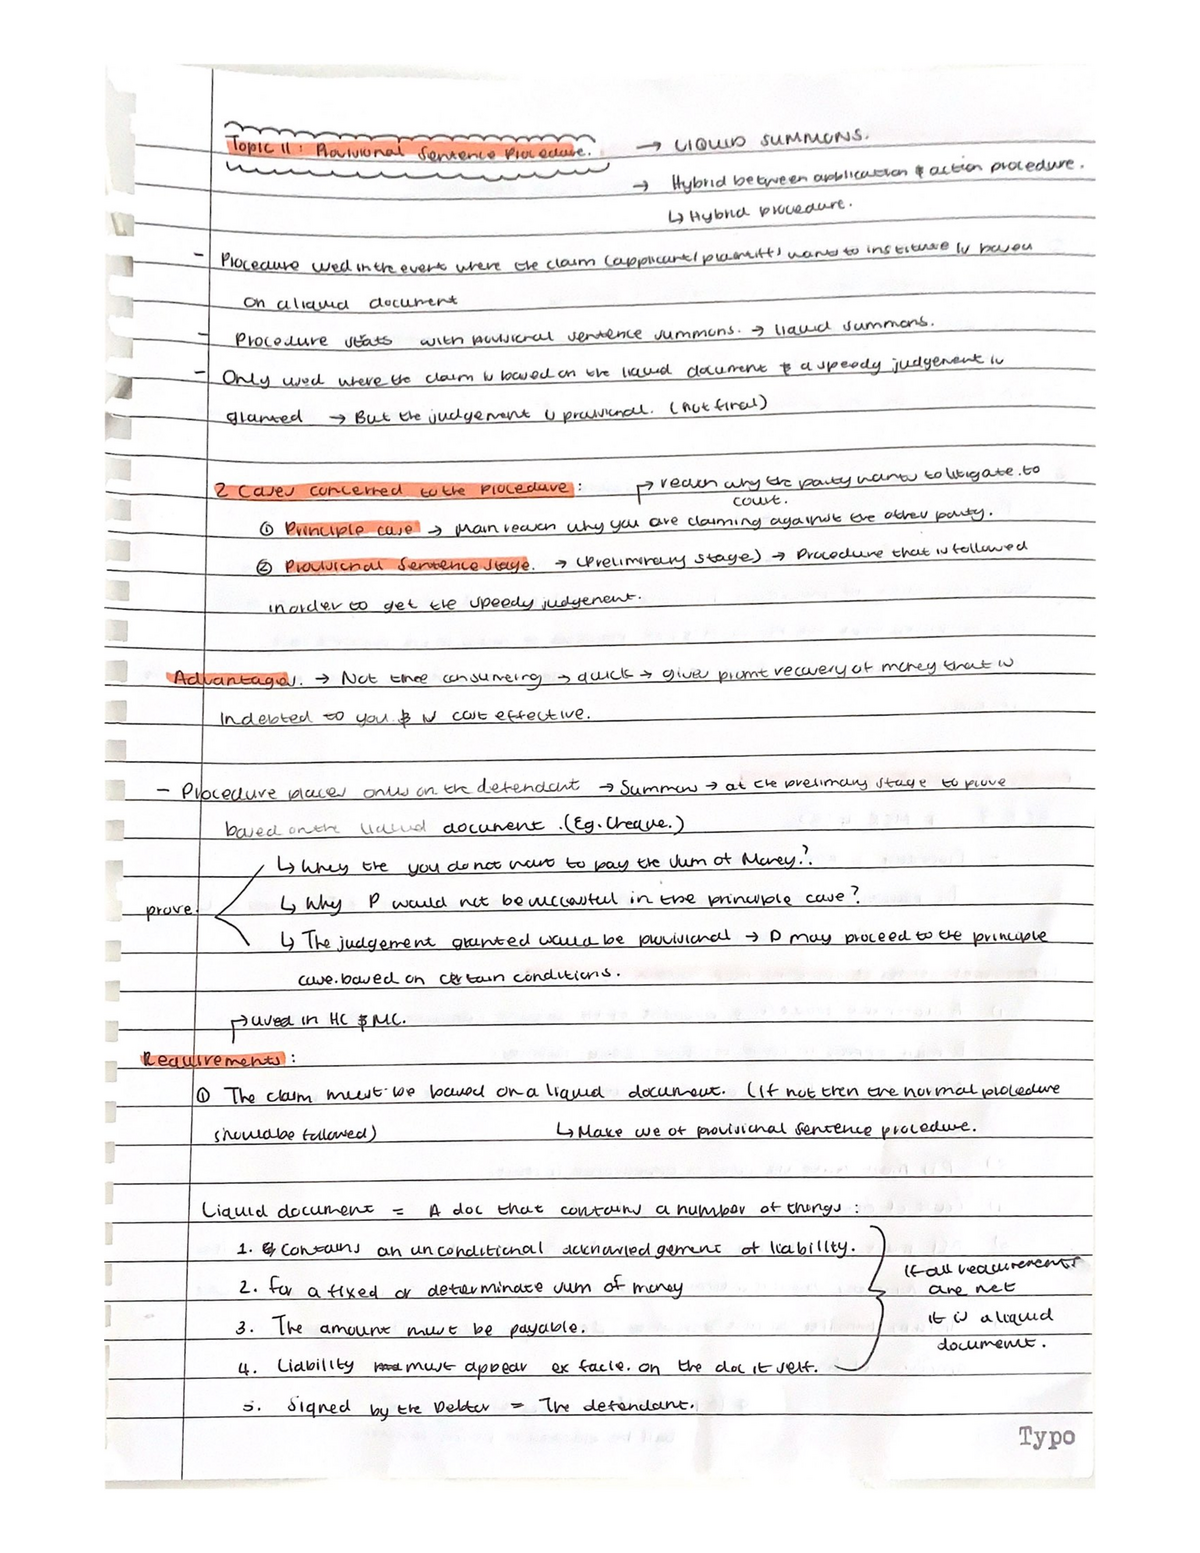 Topic 11: Provisional Sentence Procedure. → LIQUID SUMMONS.
→ Hybrid between application & action procedure.
↳ Hybrid procedure.
- Procedure used in the event where the claim (applicant/plaintiff) wants to institute is based
on a liquid document
- Procedure stats with provisional sentence summons. → liquid summons.
- Only used where the claim is based on the liquid document & a speedy judgement is
granted → But the judgement is provisional. (not final)
2 Cases concerned to the Procedure: ↱ reason why the party wants to litigate. to
court.
① Principle case → Main reason why you are claiming against the other party.
② Provisional Sentence stage. → (Preliminary stage) → Procedure that is followed
in order to get the speedy judgement.
Advantages. → Not time consuming → quick → gives promt recovery of money that is
indebted to you & is cost effective.
- Procedure places onus on the defendant → Summons → at the preliminary stage to prove
based on the liquid document. (Eg. Cheque.)
↳ Whey the you do not want to pay the sum of Money.?
prove. ↳ Why P would not be successful in the principle case?
↳ The judgement granted would be provisional → D may proceed to the principle
case. based on certain conditions.
↱ used in HC & MC.
Requirements:
① The claim must be based on a liquid document. (If not then the normal procedure
should be followed) ↳ Make use of provisional sentence procedure.
Liquid document = A doc that contains a number of things:
1. Contains an unconditional acknowledgement of liability.
If all requirements
2. for a fixed or determinate sum of money
are met
3. The amount must be payable.
it is a liquid
document.
4. Liability must appear ex facie. on the doc it self.
5. Signed by the Debtor = The defendant.
Typo